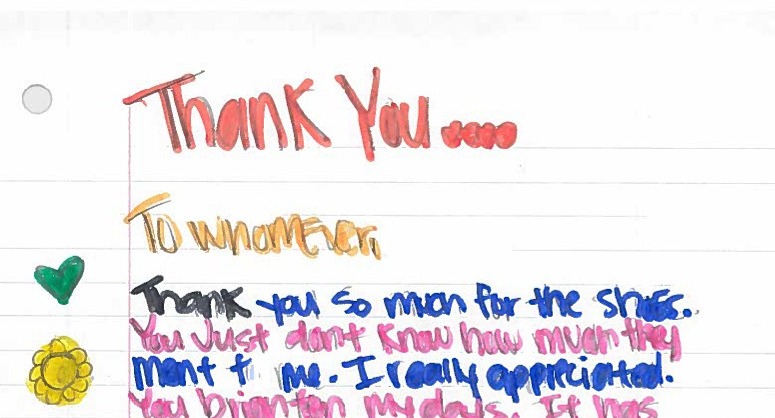 Thank You....
To whomever,
Thank you so much for the shoes.
You Just dont Know how much they
ment t me. I really appriciated.
You brighten my days. It has